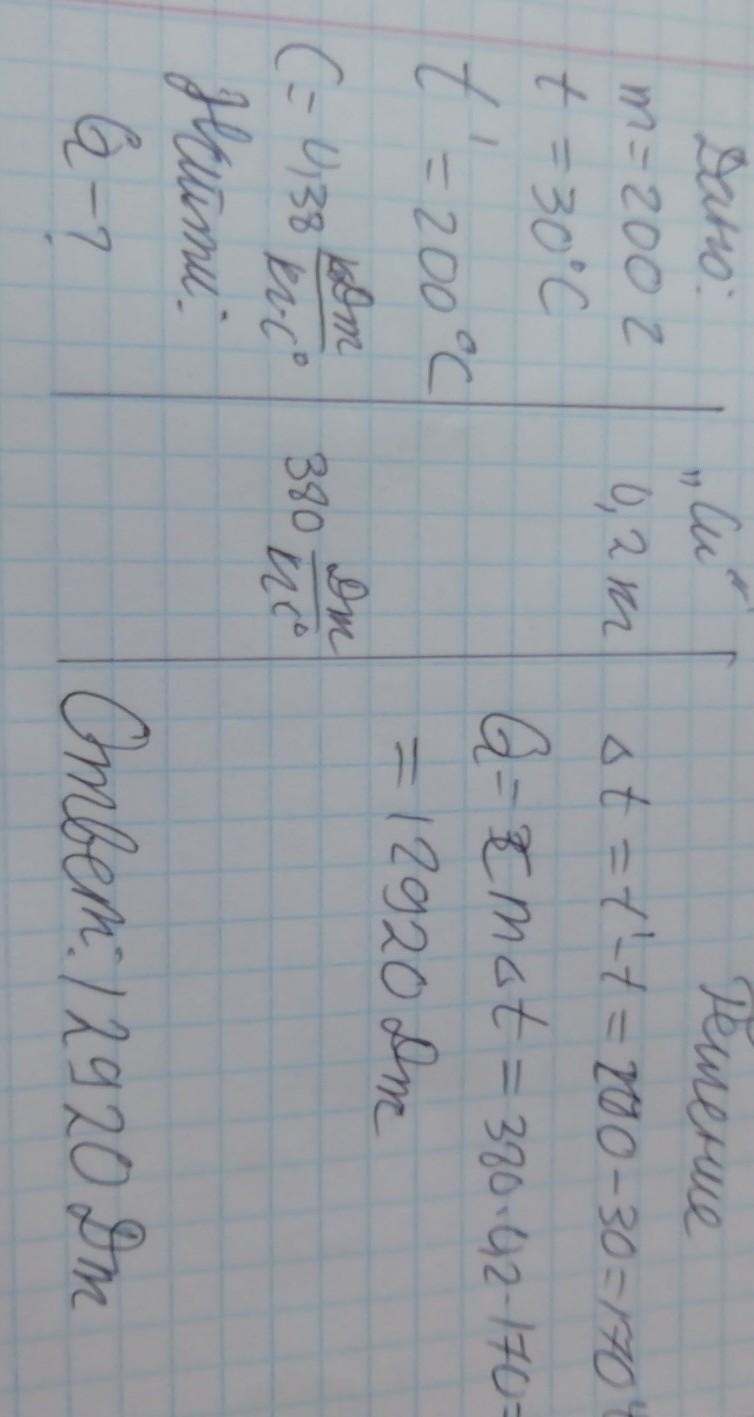 Дано:
m = 200 г
t = 30°C
t' = 200°C
C = 0,38 кДж/кг·C°
Найти:
Q - ?
"Си"
0,2 кг
380 Дж/кгC°
Решение
Δt = t' - t = 200 - 30 = 170
Q = cmΔt = 380·0,2·170 =
= 12920 Дж
Ответ: 12920 Дж